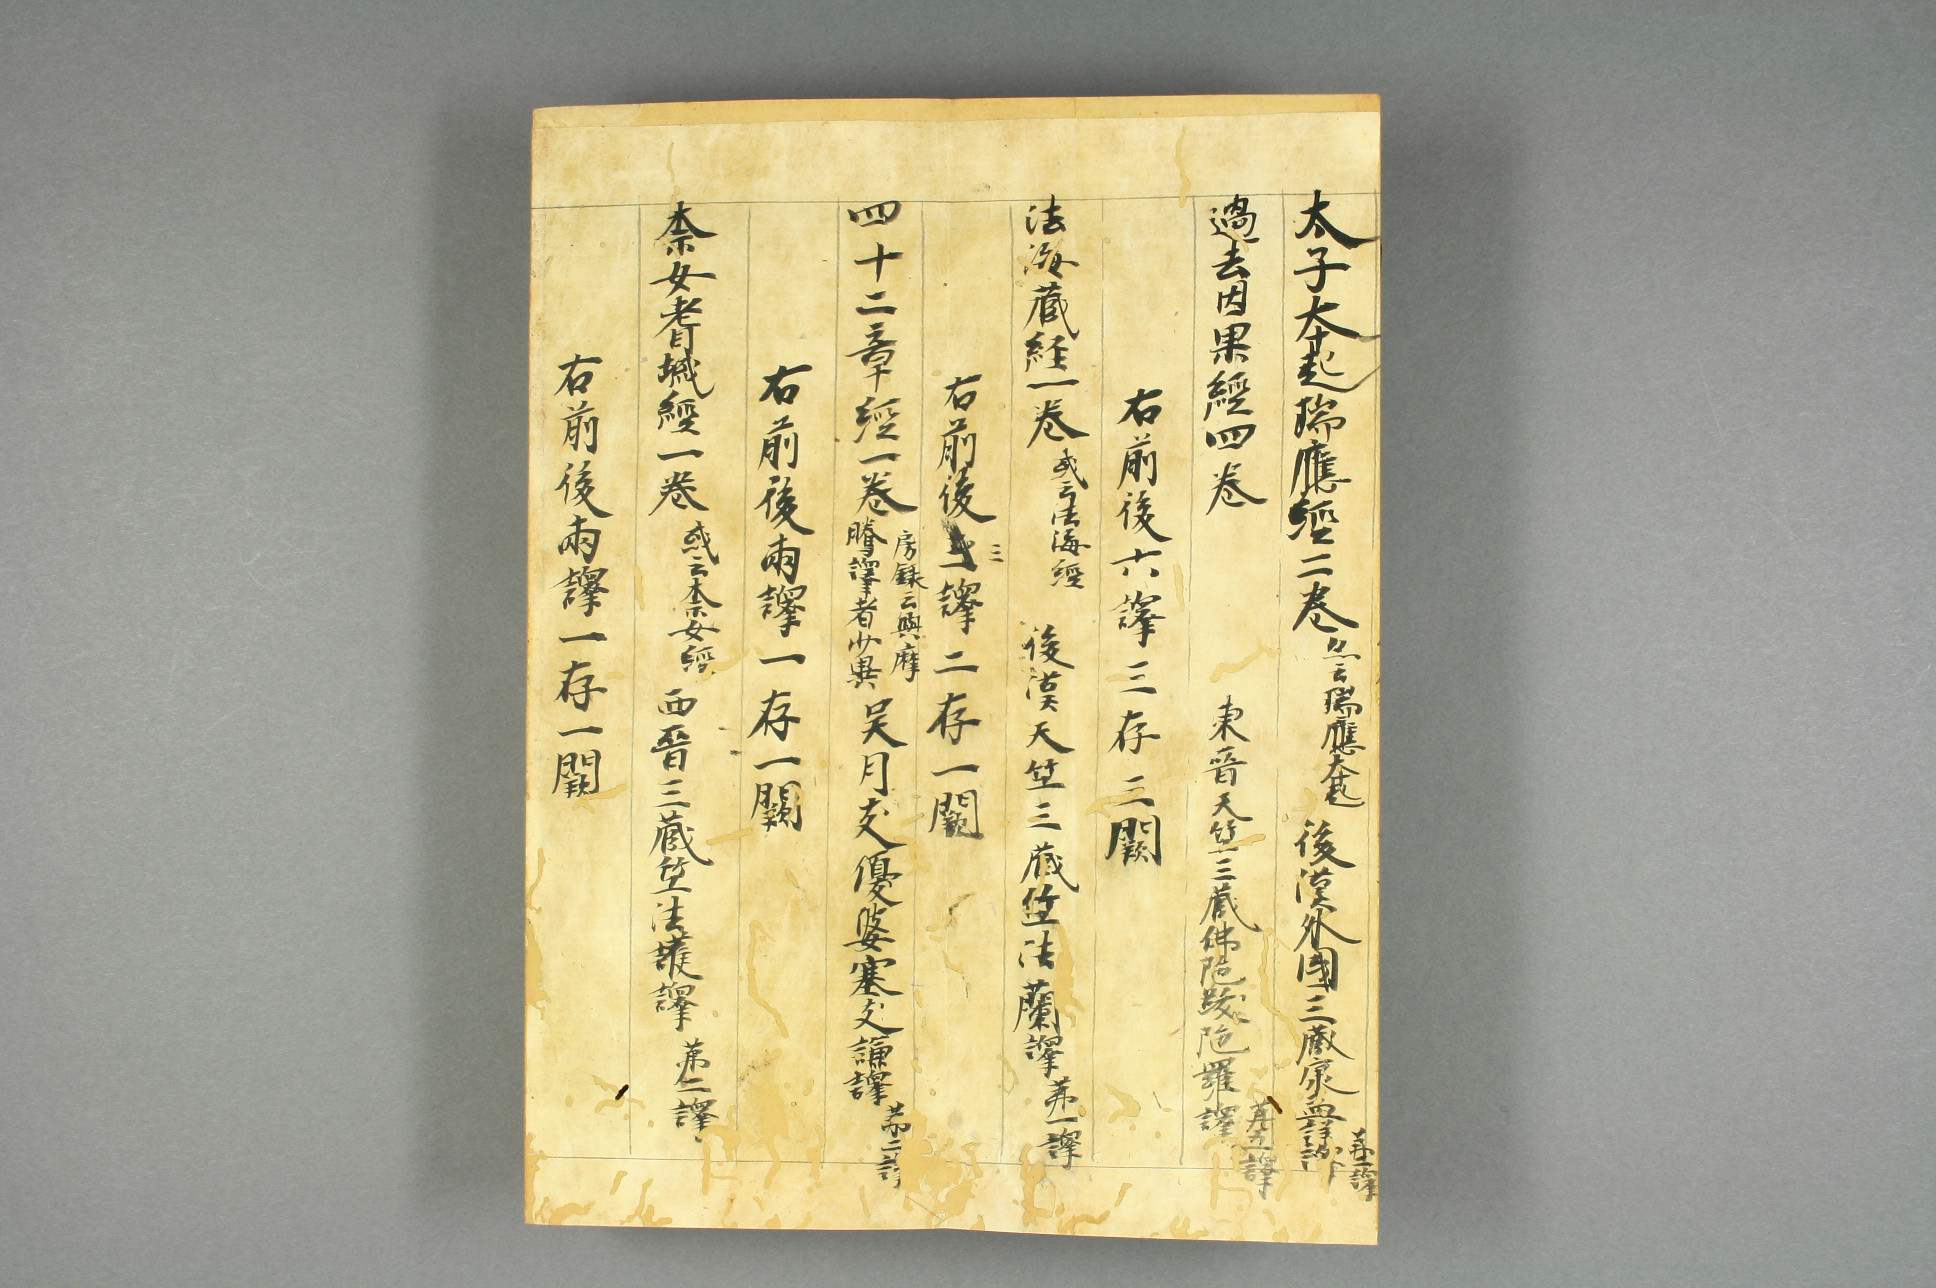 太子本起瑞應經二卷 亦云瑞應本起 後漢外國三藏康孟詳譯 第二譯
過去因果經四卷 東晉天竺三藏佛陀跋陀羅譯 第五譯
右前後六譯三存三闕
法海藏經一卷 或云法海經 後漢天竺三藏竺法蘭譯 第一譯
右前後三譯二存一闕
四十二章經一卷 房錄云與摩騰譯者少異 吳月支優婆塞支謙譯 第二譯
右前後兩譯一存一闕
柰女耆域經一卷 或云柰女經 西晉三藏竺法護譯 第二譯
右前後兩譯一存一闕